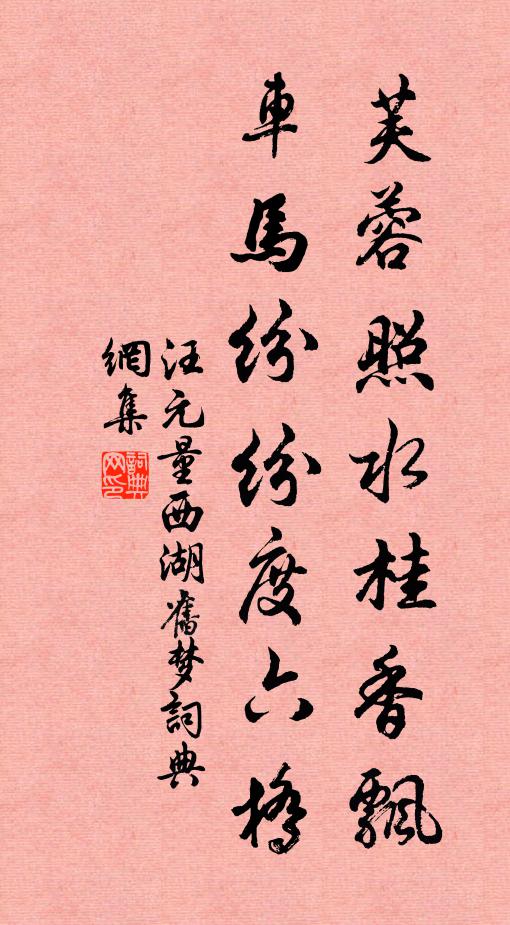 芙蓉照水桂香飄
車馬紛紛度六橋
汪元量西湖舊梦詞典
網集
詞典網印